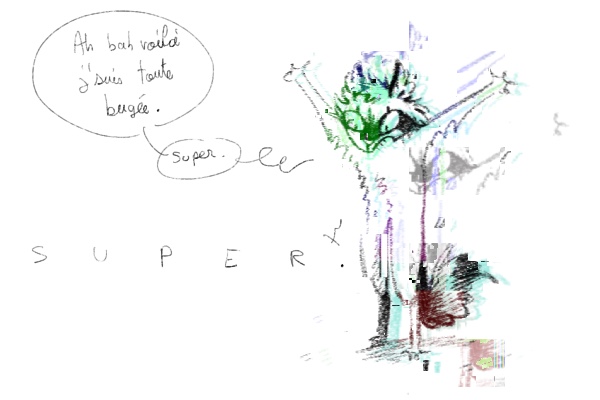 Ah bah voilà
j'suis toute
bugée.
super.
S U P E R !